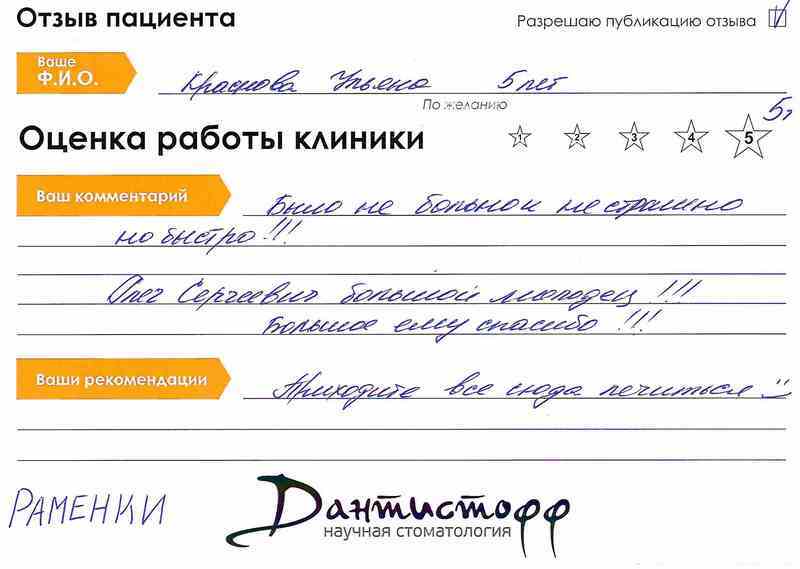 Отзыв пациента
Разрешаю публикацию отзыва
Ваше
Ф.И.О.
Краснова Ульяна 5 лет
По желанию
Оценка работы клиники
1 2 3 4 5
Ваш комментарий
Было не больно и не страшно
но быстро!!!
Олег Сергеевич большой молодец!!!
Большое ему спасибо!!!
Ваши рекомендации
Приходите все сюда лечиться
РАМЕНКИ
Дантистофф
научная стоматология